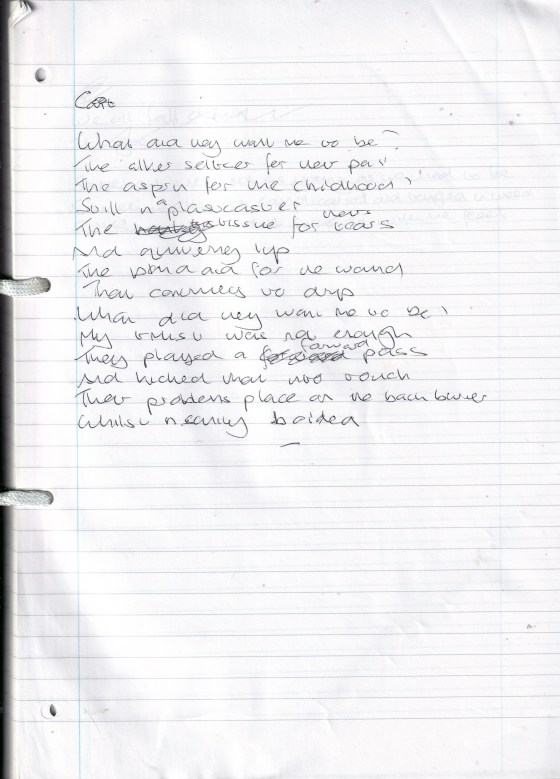 Care
What did they want me to be?
The alker seltzer for their pain
The asprin for the childhood,
Still in a plastcaster
The tissue for their tears
And quivering lip
The band aid for the wound
That continues to drip
What did they want me to be?
My trust was not enough
They played a forward pass
And kicked that into touch
Their problems place on the back burner
Whilst